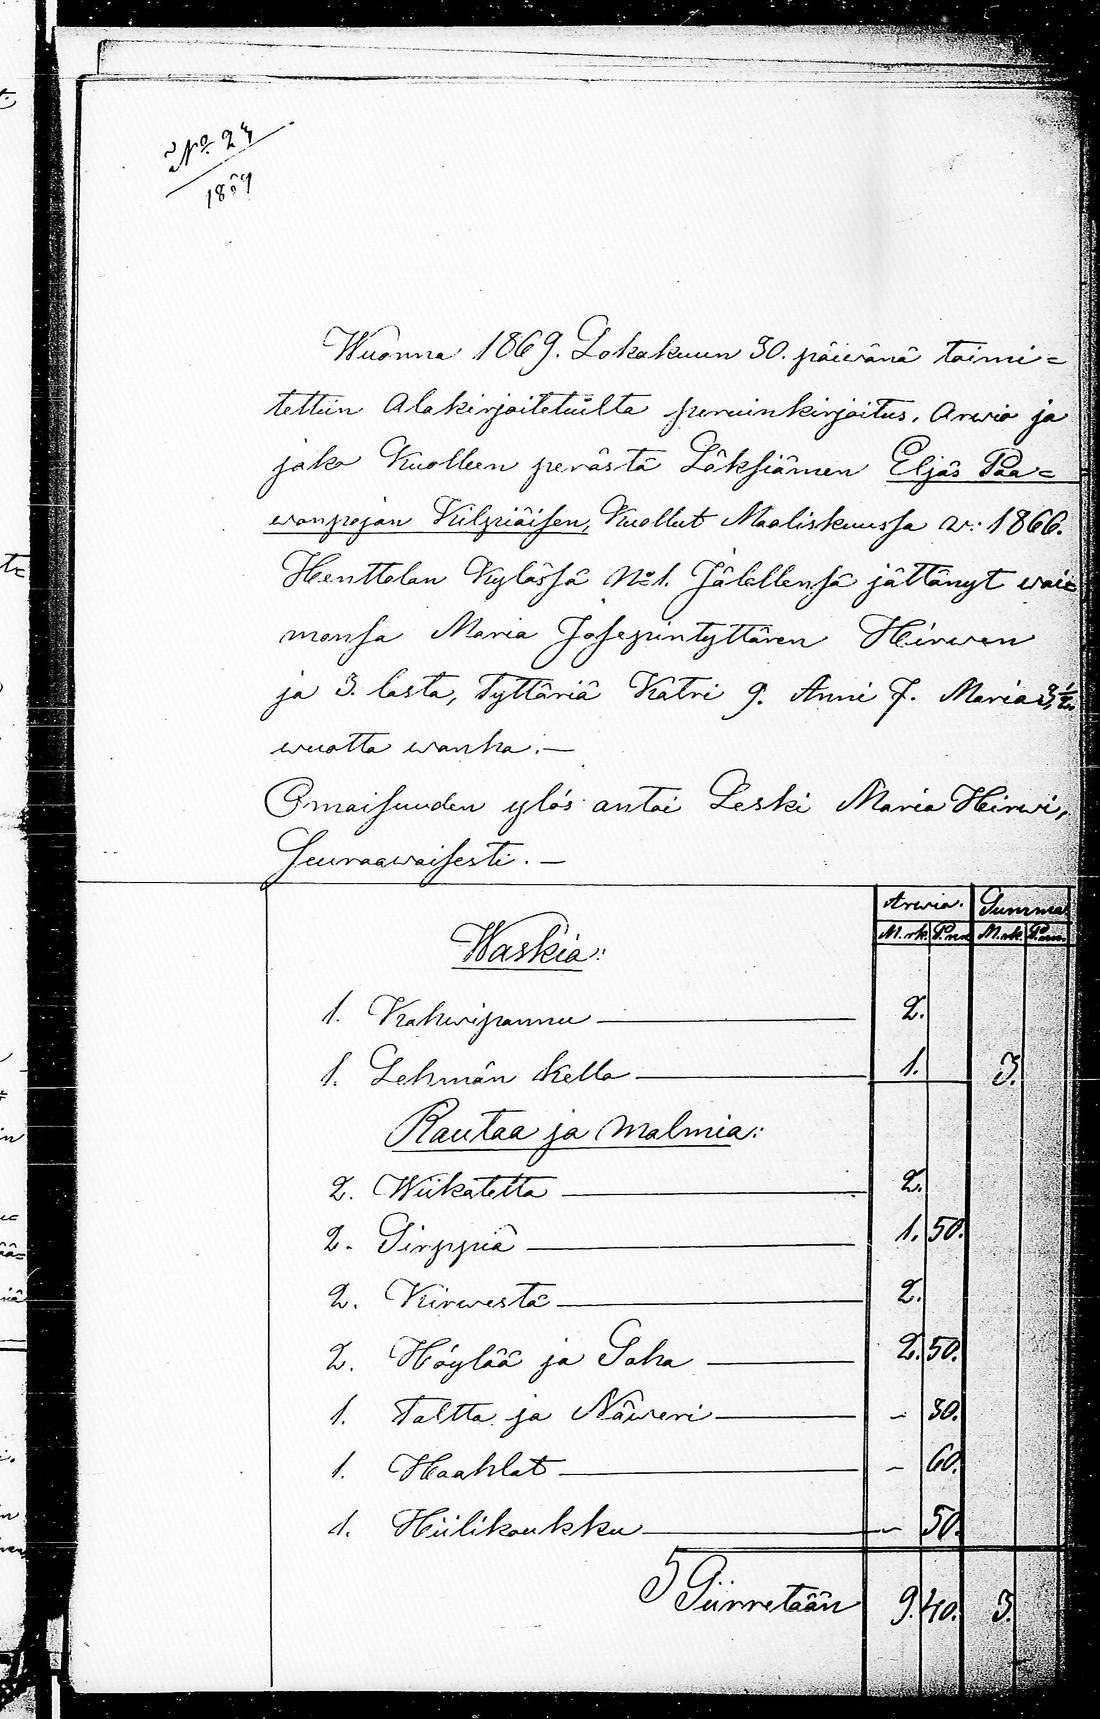 No. 23
18
Wuonna 1869. Lokakuun 30. päiwänä toimi=
tettiin Alakirjoitetuilta peruinkirjoitus, Arwio ja
jako Kuolleen perästä Läksiämen Eljäs Paa=
wonpojan Kilpiäisen, Kuollut Maaliskuussa w: 1866.
Henttolan Kylässä No 1. Jälellensä jättänyt wai=
monsa Maria Josepintyttären Hirwen
ja 3. lasta, Tyttäriä Katri 9. Anni 7. Maria 3½
wuotta wanha.—
Omaisuuden ylös antoi Leski Maria Hirwi,
Seuraawaisesti.—
Arwia. Summa.
M.rk. P.nn. M.rk. P.nn.
Waskia:
1. Kahwipannu 2.
1. Lehmän kello 1. 3.
Rautaa ja Malmia:
2. Wiikatetta 2.
2. Sirppiä 1. 50.
2. Kirwestä 2.
2. Höylää ja Saha 2. 50.
1. Taltta ja Näweri - 30.
1. Haahlat - 60.
1. Hiilikoukku - 50.
Siirretään 9. 40. 3.